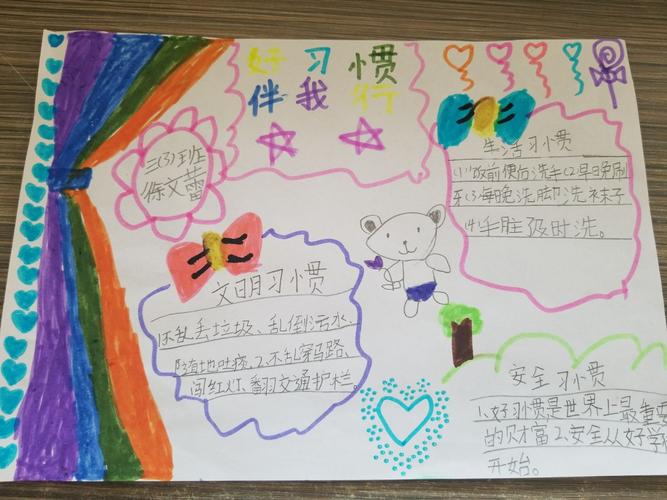 好习惯
伴我行
三(3)班
徐文蕾
生活习惯
(1)饭前便后洗手(2)早晚刷
牙(3)每晚洗脚洗袜子
(4)手脏及时洗。
文明习惯
1.不乱丢垃圾、乱倒污水、
随地吐痰.2.不乱穿马路、
闯红灯、翻交通护栏。
安全习惯
1.好习惯是世界上最重要
的财富2.安全从好学
开始。